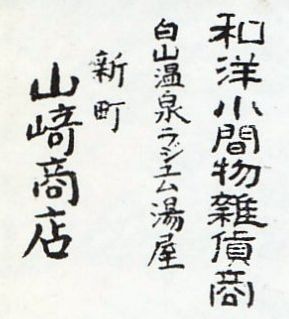 和洋小間物雑貨商
白山温泉ラジエム湯屋
新町
山﨑商店